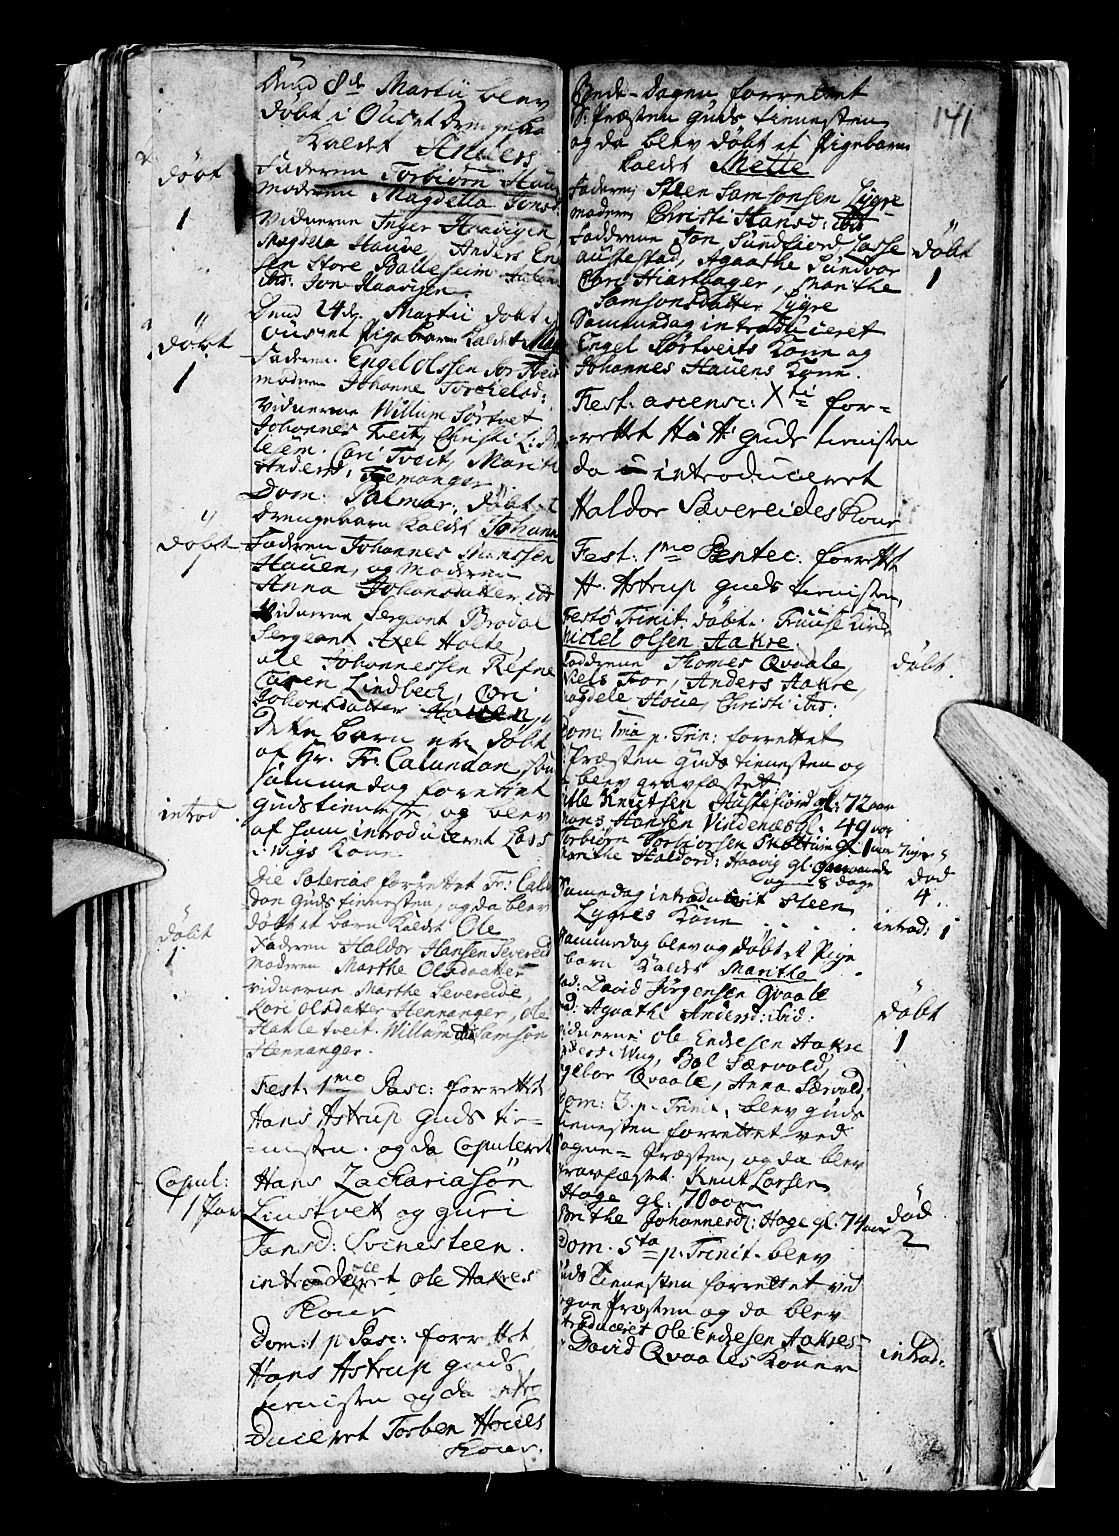 Dend 8de Martii blev
døbt i Ous et Drengeba
Kaldet Anders
døbt Faderen Torbiørn Haue
1 moderen Magdella Jonsd:
Vidnerne Inger Haavigen
Magdela Haúve Anders En
sen Store Balleseim
Jon Haavigen
Dend 24de Martii døbt
døbt Ous et Pige barn Kaldet
1 Faderen Engel Olssen Sør Tveit
moderen Johanne Torchelsd:
Vidnerne Willum Sørtvet
Johannes Tveit, Christi
Cari Tveit, Marit
Anders, Femanger
Dom: Palmar: døbt et
døbt Drengebarn Kaldet Johann
1 Faderen Johannes Monssen
Hauen, og moderen
Anna Johansdatter ibd
Vidnerne Sergeant Brodal
Sergeant Axel Holte,
ole Johannessen Refne
Caren Lindbeck, Cari
Johansdatter Hauen,
Dette barn er døbt
af Hr. Fr: Calundan som
samme dag forrettet
introd gudstieneste, og blev
af ham introduceret Lass
i Wigs Kone
Die Soterias forrettet Fr: Calu
dan Guds tienesten, og da blev
døbt døbt et barn Kaldet Ole
1 Faderen Haldor Hansen Severeid
moderen Marthe Olsdaatter
vidnerne Marthe Severeide,
Kari Olsdatter Hennanger, ole
Hakletveit Willum Samson
Hennanger.
Fest: 1mo Pasc: forrettet
Hans Astrup Guds tie=
=nisten. og da Copuleret
Copul: Hans Zachariasøn
1 Par Linstvet og guri
Jansd: Svinesteen.
introduceret ole Aakres
Kone
Dom: 1 p Pasc: forrettet
Hans Astrup guds
tienisten og da intro
Duceret Torben Houes
Kone.
141
Bede-Dagen forrettet
Præsten Guds tienesten
og da blev døbt et Pigebarn
kaldet Mette
Faderen Steen Samsonsen Lygre
moderen Christi Hansd: ibd
Fadderne Jon Sundfiord Lasse døbt
austestad, Agaathe Sundvor 1
Cari Hiartager, Marthe
Samsonsdatter Lygre
Sammedag introduceret
Engel Sørtveits Kone og
Johannes Hauens Kone.
Fest: ascens: Xti for=
=rettet Ha A: guds tienisten
da introduceret
Haldor Sævereides Kone
Fest: 1mo Pentec: forrettet
H. Astrup guds tienisten,
Festo Trinit: døbt i Kirke
michel olsen Aakre. døbt
Fadderne Thomes Qvaale,
Niels For, Anders Aakre,
Magdele Houe, Christi ibd:
Dom: 1ma p. Trin: forrettet
Præsten guds tienesten og
blev gravfæstet
Knutsen Austefiord gl: 72 aar
Hans Hansen Vindenæs gl: 49 aar
Torbiørn Torbiørsen gl. 1 aar 7 uger
Marthe Haldord: Haavig gl: død
og 8 dage 4
Samedag introduceret Steen
Lygres Kone introd: 1
Sammedag blev og døbt et Pige
barn Kaldet Maritha
Fad: David Jørgensen Qvaale
Agaathe Andersd: ibid: døbt
Vidnerne: Ole Endresen Aakre 1
Anders i Wiig, Bol Særvold,
Qvaale, Anna Særvold:
Dom: 3. p. Trinit: blev guds
tienesten forrettet ved
Sogne=Præsten, og da blev
Gravfæstet Knut Larsen
Hage gl: 70 aar død
Marthe Johannesd: Hage gl. 74 aar 2
Dom. 5ta p. Trinit. blev
guds tienesten forrettet ved
Sogne Præsten og da blev
introduceret Ole Endresen Aakres
David Qvaales Koner introd: